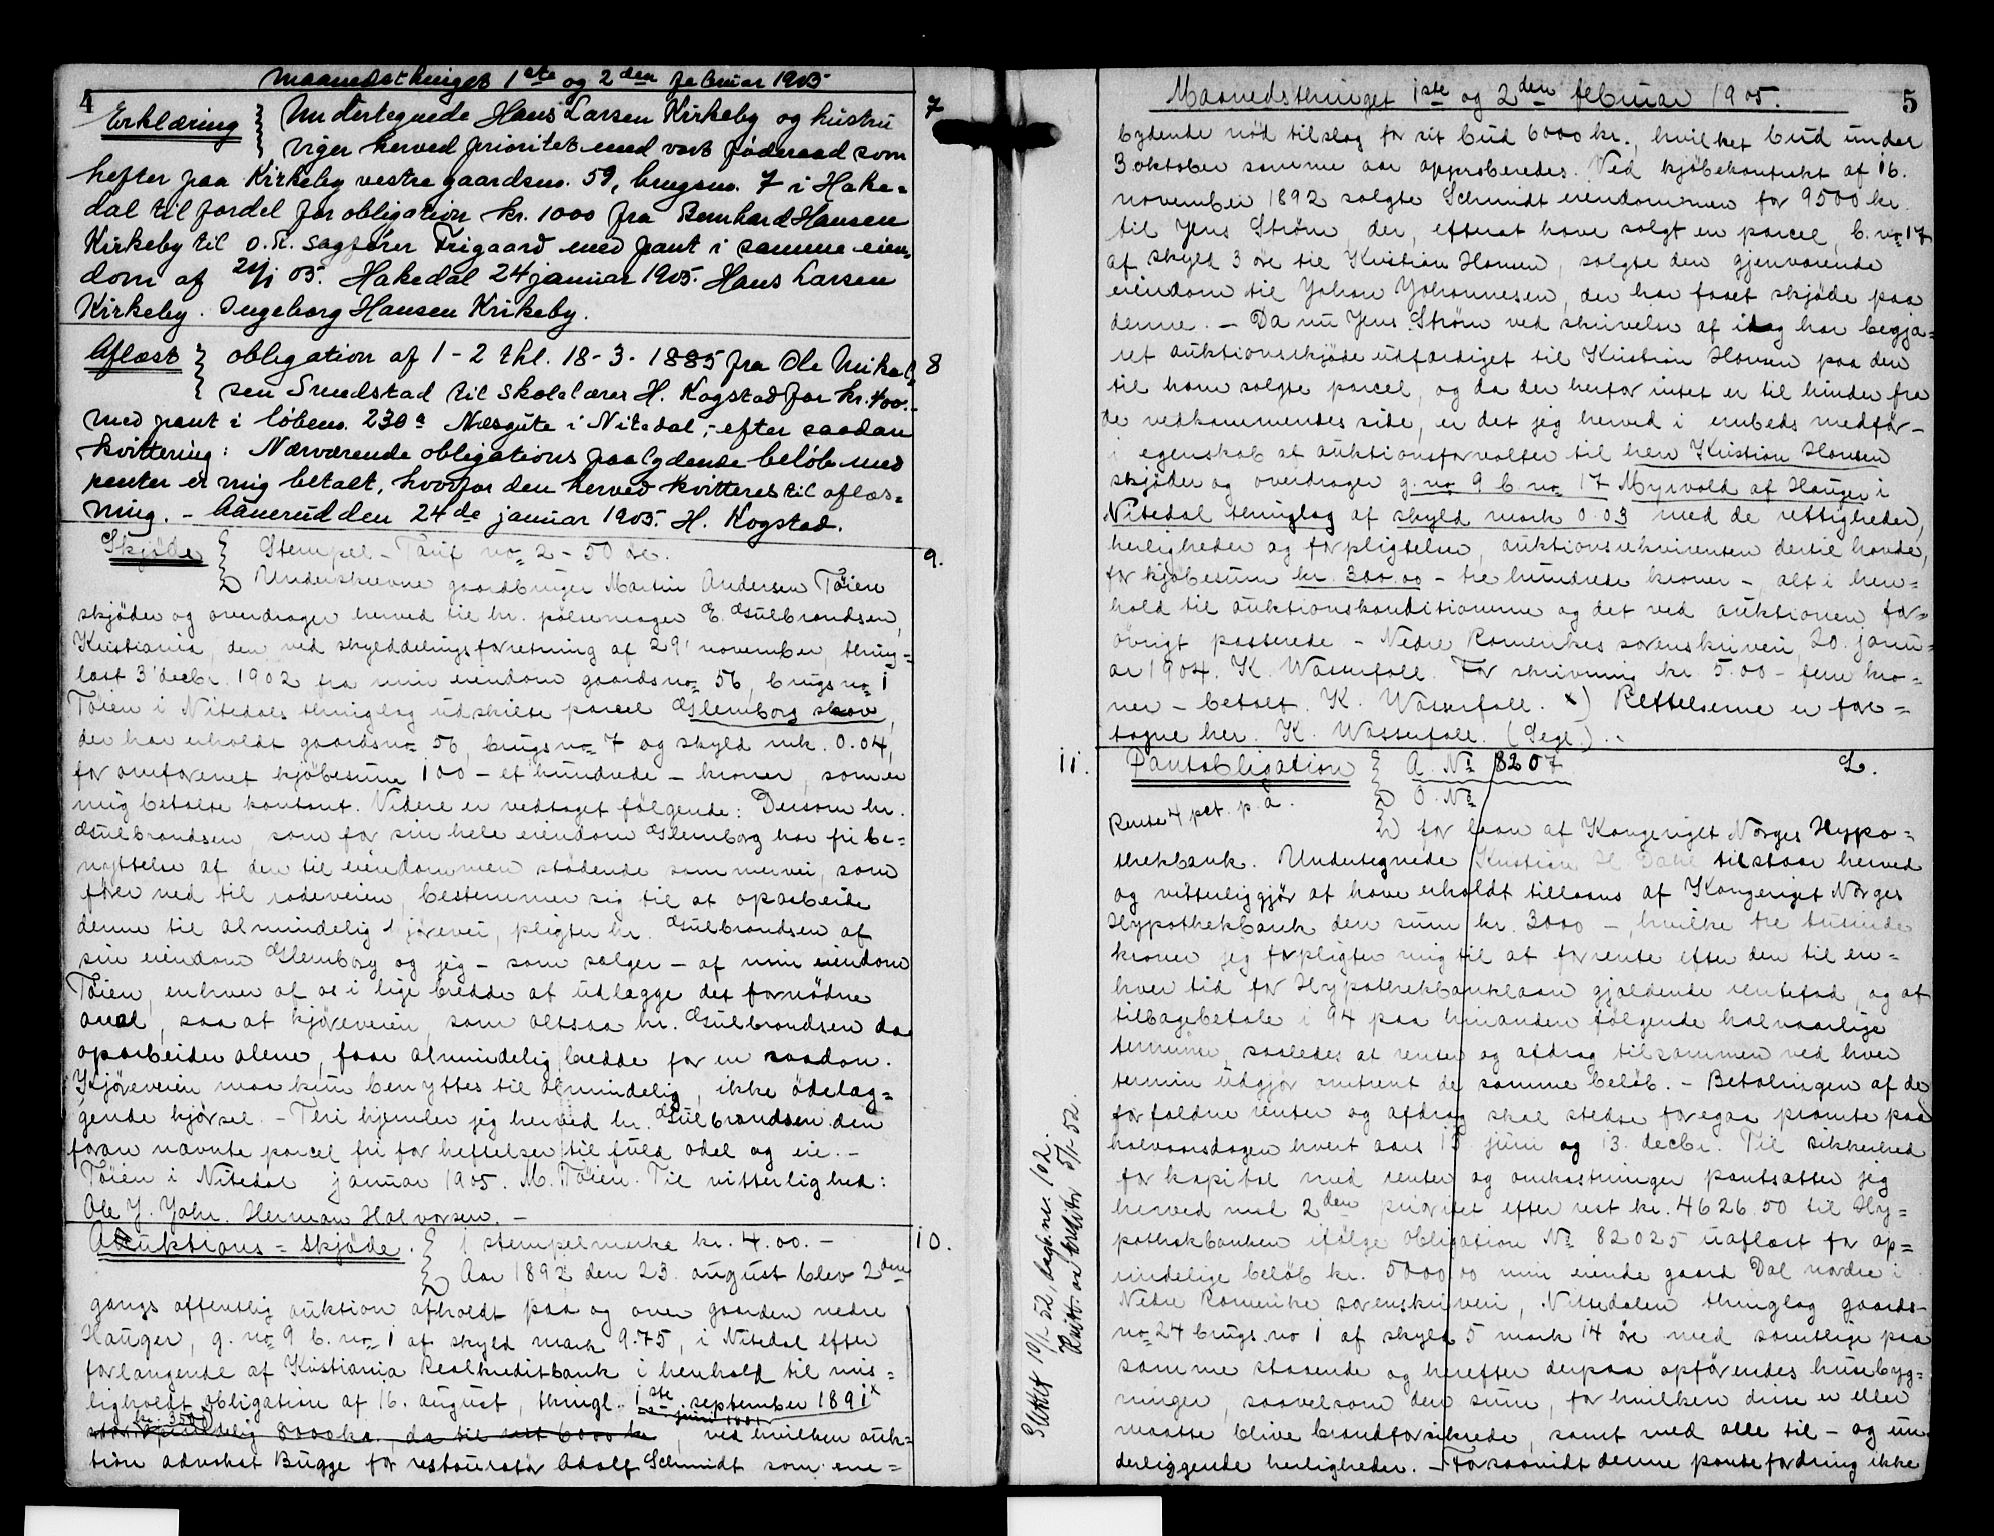 4
Maanedsthinget 1ste og 2den februar 1905
Erklæring Undertegnede Hans Larsen Kirkeby og hustru
viger herved prioritet med vort föderaad som
hefter paa Kirkeby vestre gaardsno. 59, brugsno. 7 i Hake-
dal til fordel for obligation kr. 1000 fra Bernhard Hansen
Kirkeby til o.r. sagfører Trigaard med pant i samme eien-
dom af 24/1 05. Hakedal 24 januar 1905. Hans Larsen
Kirkeby. Ingeborg Hansen Krikeby.
7
Aflæst obligation af 1-2 thl. 18-3-1885 fra Ole Mikal-
sen Sundstad til skolelærer H. Kogstad for kr. 400.-
med pant i löbeno. 230a Næsgute i Nitedal, - efter saadan
kvittering: Nærværende obligations paalydende belöb med
renter er mig betalt, hvorfor den herved kvitteres til aflæs-
ning. - Aanerud den 24de januar 1905. H. Kogstad.
8
Skjöde Stempel-Tarif no 2 - 50 öre.
Underskrevne gaardbruger Martin Andersen Töien
skjöder og overdrager herved til hr. pölsemager E. Gulbrandsen,
Kristiania, den ved skylddelingsforretning af 29' november, thing-
læst 3' decbr. 1902 fra min eiendom gaardsno 56, brugsno 1
Töien i Nitedals thinglag udskilte parcel Glemborg skov,
der har erholdt gaardsno 56, brugsno 7 og skyld mk. 0.04,
for omforenet kjöbesum 100 - et hundrede - kroner, som er
mig betalte kontant. Videre er vedtaget fölgende: Dersom hr.
Gulbrandsen, som for sin hele eiendom Glemborg har fri be-
nyttelse af den til eiendommen stödende sommervei, som
förer ned til rodeveien, bestemmer sig til at oparbeide
denne til almindelig kjörevei, pligter hr. Gulbrandsen af
sin eiendom Glemborg og jeg - som sælger - af min eiendom
Töien, enhver af os i lige bredde at udlægge det fornödne
areal, saa at kjöreveien, som altsaa hr. Gulbrandsen da
oparbeider alene, faar almindelig bredde for en saadan.
Kjöreveien maa kun benyttes til almindelig, ikke ödelæg-
gende kjörsel. - Thi hjemler jeg herved hr. Gulbrandsen den
foran nævnte parcel fri for heftelser til fuld odel og eie. -
Töien i Nitedal januar 1905. M. Töien. Til vitterlighed:
Ole J. Johr. Herman Halvorsen. -
9.
Auktions-skjöde. 1 stempelmerke kr. 4.00. -
Aar 1892 den 23. august blev 2den
gangs offentlig auktion afholdt paa og over gaarden nedre
Hauger, g. no 9 b. no 1 af skyld mark 9.75, i Nitedal efter
forlangende af Kristiania Realkreditbank i henhold til mis-
ligholdt obligation af 16. august, thingl. 1ste september 1891 x
kr. 3500 juni 1881
stor oprindelig 8000 kr., da til rest 6000 kr, ved hvilken auk-
tion advokat Bugge for restauratör Adolf Schmidt som ene-
10.
Maanedsthinget 1ste og 2den februar 1905.
5
bydende nöd tilslag for sit bud 6000 kr., hvilket bud under
3 oktober samme aar approberedes. Ved kjöbekontrakt af 16.
november 1892 solgte Schmidt eiendommen for 9500 kr.
til Jens Ström, der, efterat have solgt en parcel, b. no 17
af skyld 3 öre til Kristian Hansen, solgte den gjenværende
eiendom til Johan Johannesen, der har faaet skjöde paa
denne. - Da nu Jens Ström ved skrivelse af idag har begjæ-
ret auktionsskjöde udfærdiget til Kristian Hansen paa den
til ham solgte parcel, og da der herfor intet er til hinder fra
de vedkommendes side, er det jeg herved i embeds medför-
i egenskab af auktionsforvalter til herr Kristian Hansen
skjöder og overdrager g. no 9 b. no 17 Myrvold af Hauger i
Nitedal thinglag af skyld mark 0.03 med de rettigheder,
herligheder og forpligtelser, auktionsrekvirenten dertil havde,
for kjöbesum kr. 300.00 - tre hundrede kroner -, alt i hen-
hold til auktionskonditionerne og det ved auktionen for-
övrigt passerede. - Nedre Romerikes sorenskriveri, 20. janu-
ar 1904. K. Wasserfall. For skrivning kr. 5.00 - fem kro-
ner - betalt. K. Wasserfall. x) Rettelserne er fore-
tagne her. K. Wasserfall. (Segl). -
11. Pantobligation A. No 8207 L.
O. No
Rente 4 pct. p. a.
for laan af Kongeriget Norges Hypo-
thekbank. Undertegnede Kristian H. Dahl tilstaar herved
og vitterliggjör at have erholdt tillaans af Kongeriget Norges
Hypothekbank den sum kr. 3000 -, hvilke tre tusinde
kroner jeg forpligter mig til at forrente efter den til en-
hver tid for Hypothekbanklaan gjældende rentefod, og at
tilbagebetale i 94 paa hinanden fölgende halvaarlige
terminer, saaledes at renter og afdrag tilsammen ved hver
termin udgjör omtrent de samme belöb. - Betalingen af de
forfaldne renter og afdrag skal stedse foregaa promte paa
halvaarsdagen hvert aars 13. juni og 13. decbr. Til sikkerhed
for kapital med renter og omkostninger pantsætter jeg
herved med 2den prioritet efter rest kr. 4626.50 til Hy-
pothekbanken ifölge obligation No 82025 uaflæst for op-
rindelige belöb kr. 5000.00 min eiende gaard Dal nordre i
Nedre Romerike sorenskriveri, Nittedalen thinglag gaards-
no 24 brugs no 1 af skyld 5 mark 14 öre med samtlige paa
samme staaende og herefter derpaa opförendes husebyg-
ninger, saavelsom den sum, for hvilken disse er eller
maatte blive brandforsikrede, samt med alle til- og un-
derliggende herligheder. - Forsaavidt denne pantefordring ikke
Slettet 10/1-52, dagb.nr. 102.
Kvitt. av kreditor 5/1-52.